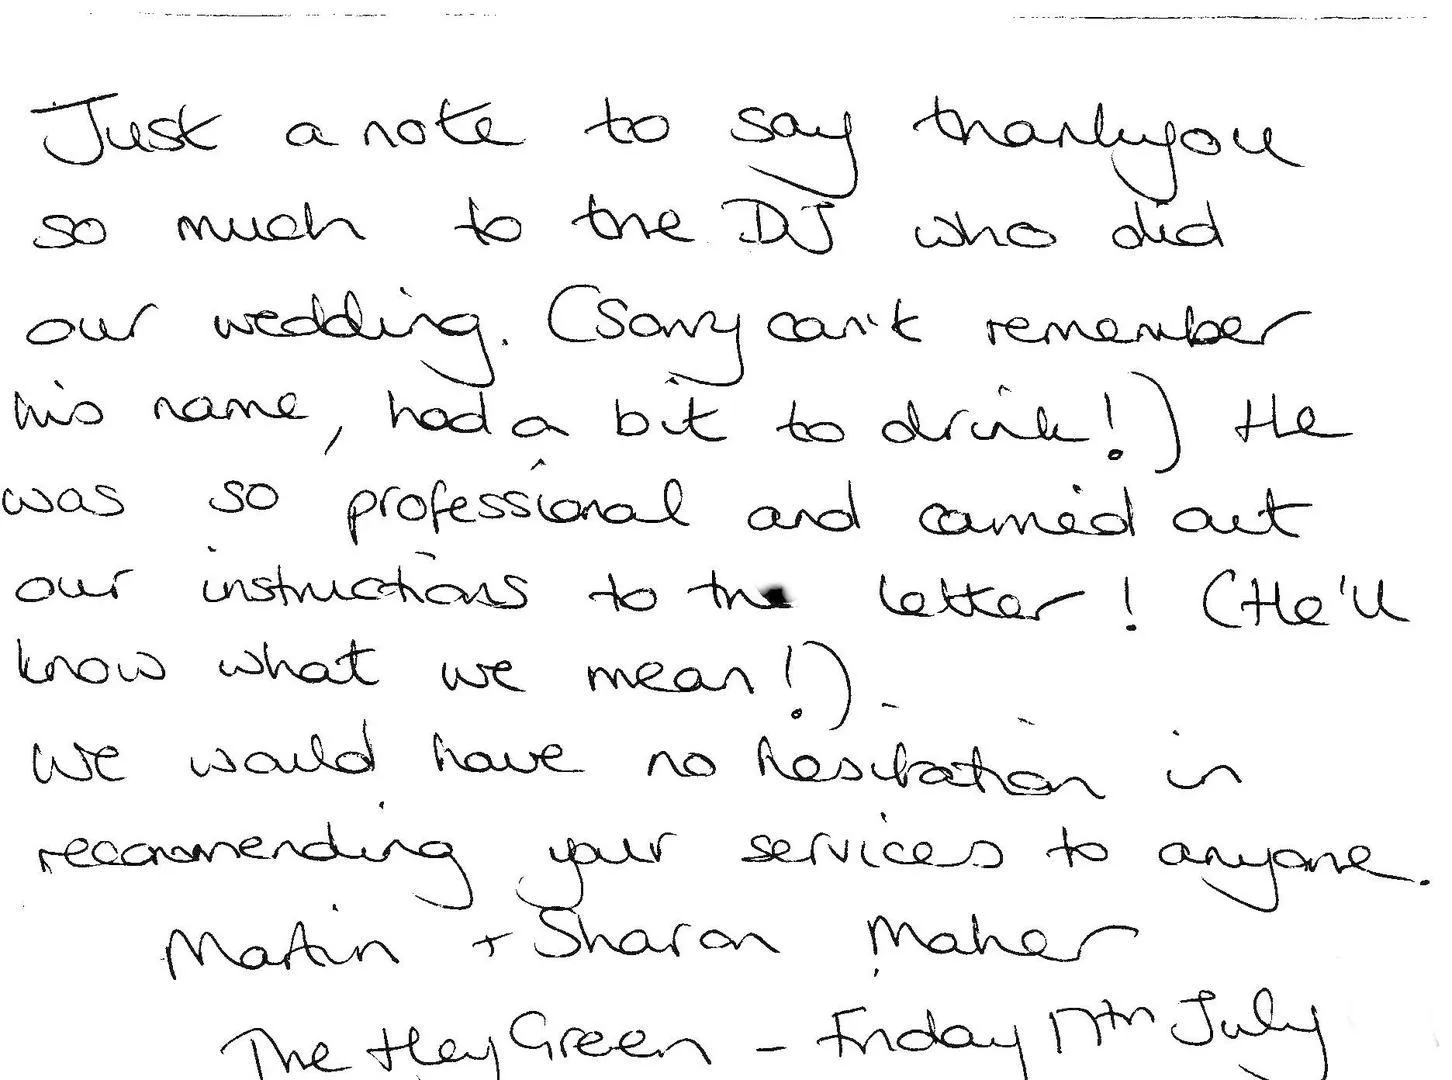 Just a note to say thankyou
so much to the DJ who did
our wedding. (Sorry can't remember
his name, had a bit to drink!) He
was so professional and carried out
our instructions to the letter! (He'll
know what we mean!).
We would have no hesitation in
recommending your services to anyone.
Martin + Sharon Maher
The Hey Green - Friday 17th July